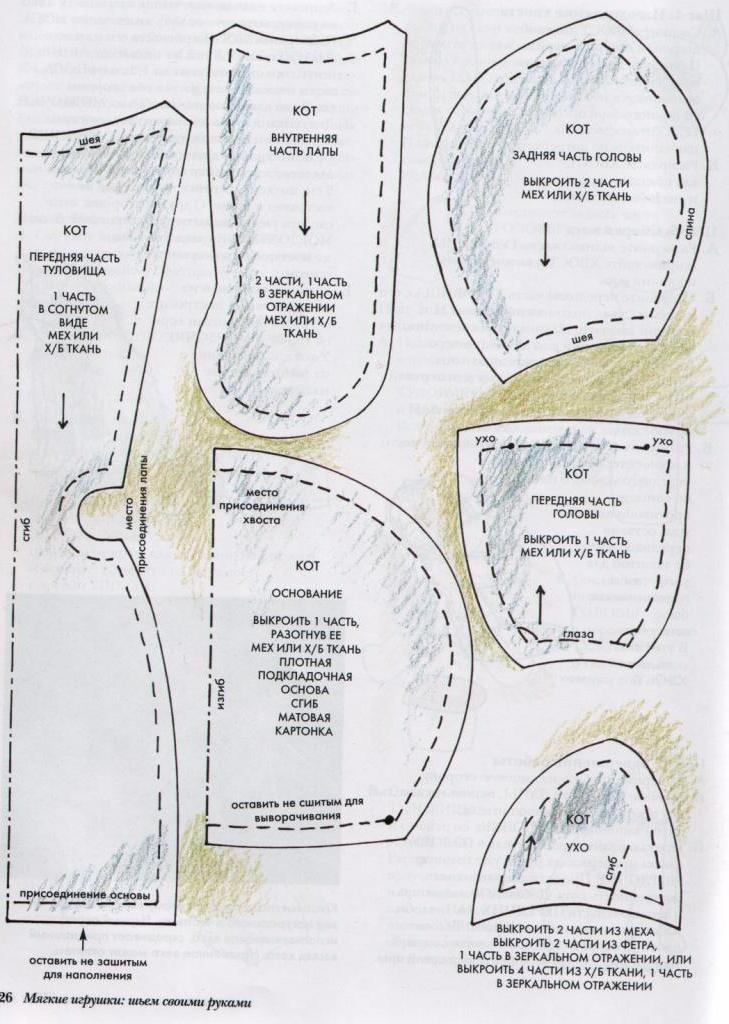 шея
КОТ
ПЕРЕДНЯЯ ЧАСТЬ
ТУЛОВИЩА
1 ЧАСТЬ
В СОГНУТОМ
ВИДЕ
МЕХ ИЛИ
Х/Б ТКАНЬ
сгиб
место
присоединения лапы
присоединение основы
оставить не зашитым
для наполнения
КОТ
ВНУТРЕННЯЯ
ЧАСТЬ ЛАПЫ
2 ЧАСТИ, 1 ЧАСТЬ
В ЗЕРКАЛЬНОМ
ОТРАЖЕНИИ
МЕХ ИЛИ Х/Б
ТКАНЬ
КОТ
ЗАДНЯЯ ЧАСТЬ ГОЛОВЫ
ВЫКРОИТЬ 2 ЧАСТИ
МЕХ ИЛИ Х/Б ТКАНЬ
спина
шея
место
присоединения
хвоста
КОТ
ОСНОВАНИЕ
ВЫКРОИТЬ 1 ЧАСТЬ,
РАЗОГНУВ ЕЕ
МЕХ ИЛИ Х/Б ТКАНЬ
ПЛОТНАЯ
ПОДКЛАДОЧНАЯ
ОСНОВА
СГИБ
МАТОВАЯ
КАРТОНКА
изгиб
оставить не сшитым для
выворачивания
ухо
ухо
КОТ
ПЕРЕДНЯЯ ЧАСТЬ
ГОЛОВЫ
ВЫКРОИТЬ 1 ЧАСТЬ
МЕХ ИЛИ Х/Б ТКАНЬ
глаза
КОТ
УХО
сгиб
ВЫКРОИТЬ 2 ЧАСТИ ИЗ МЕХА
ВЫКРОИТЬ 2 ЧАСТИ ИЗ ФЕТРА,
1 ЧАСТЬ В ЗЕРКАЛЬНОМ ОТРАЖЕНИИ, ИЛИ
ВЫКРОИТЬ 4 ЧАСТИ ИЗ Х/Б ТКАНИ, 1 ЧАСТЬ
В ЗЕРКАЛЬНОМ ОТРАЖЕНИИ
26 Мягкие игрушки: шьем своими руками